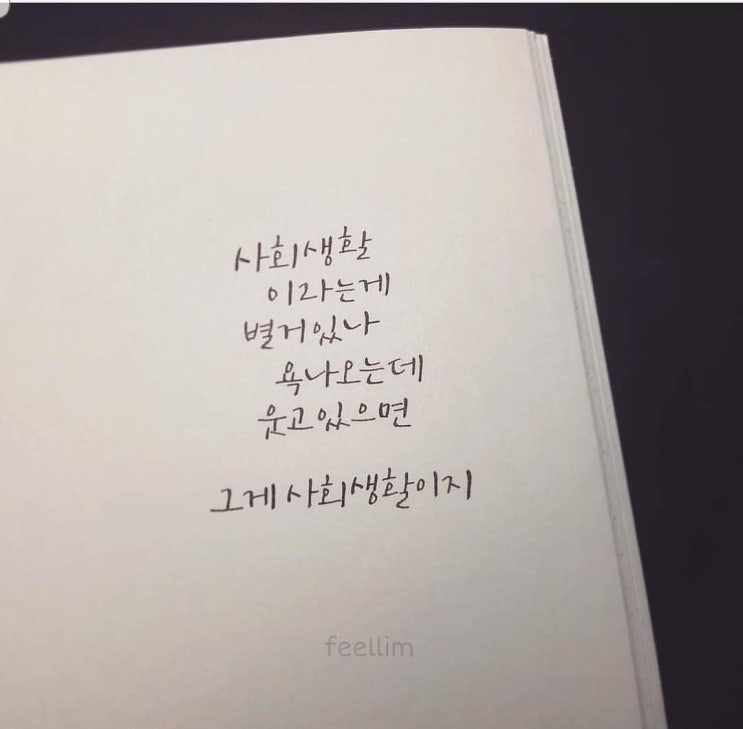 사회생활
이라는게
별거있나
욕나오는데
웃고있으면
그게 사회생활이지
feellim